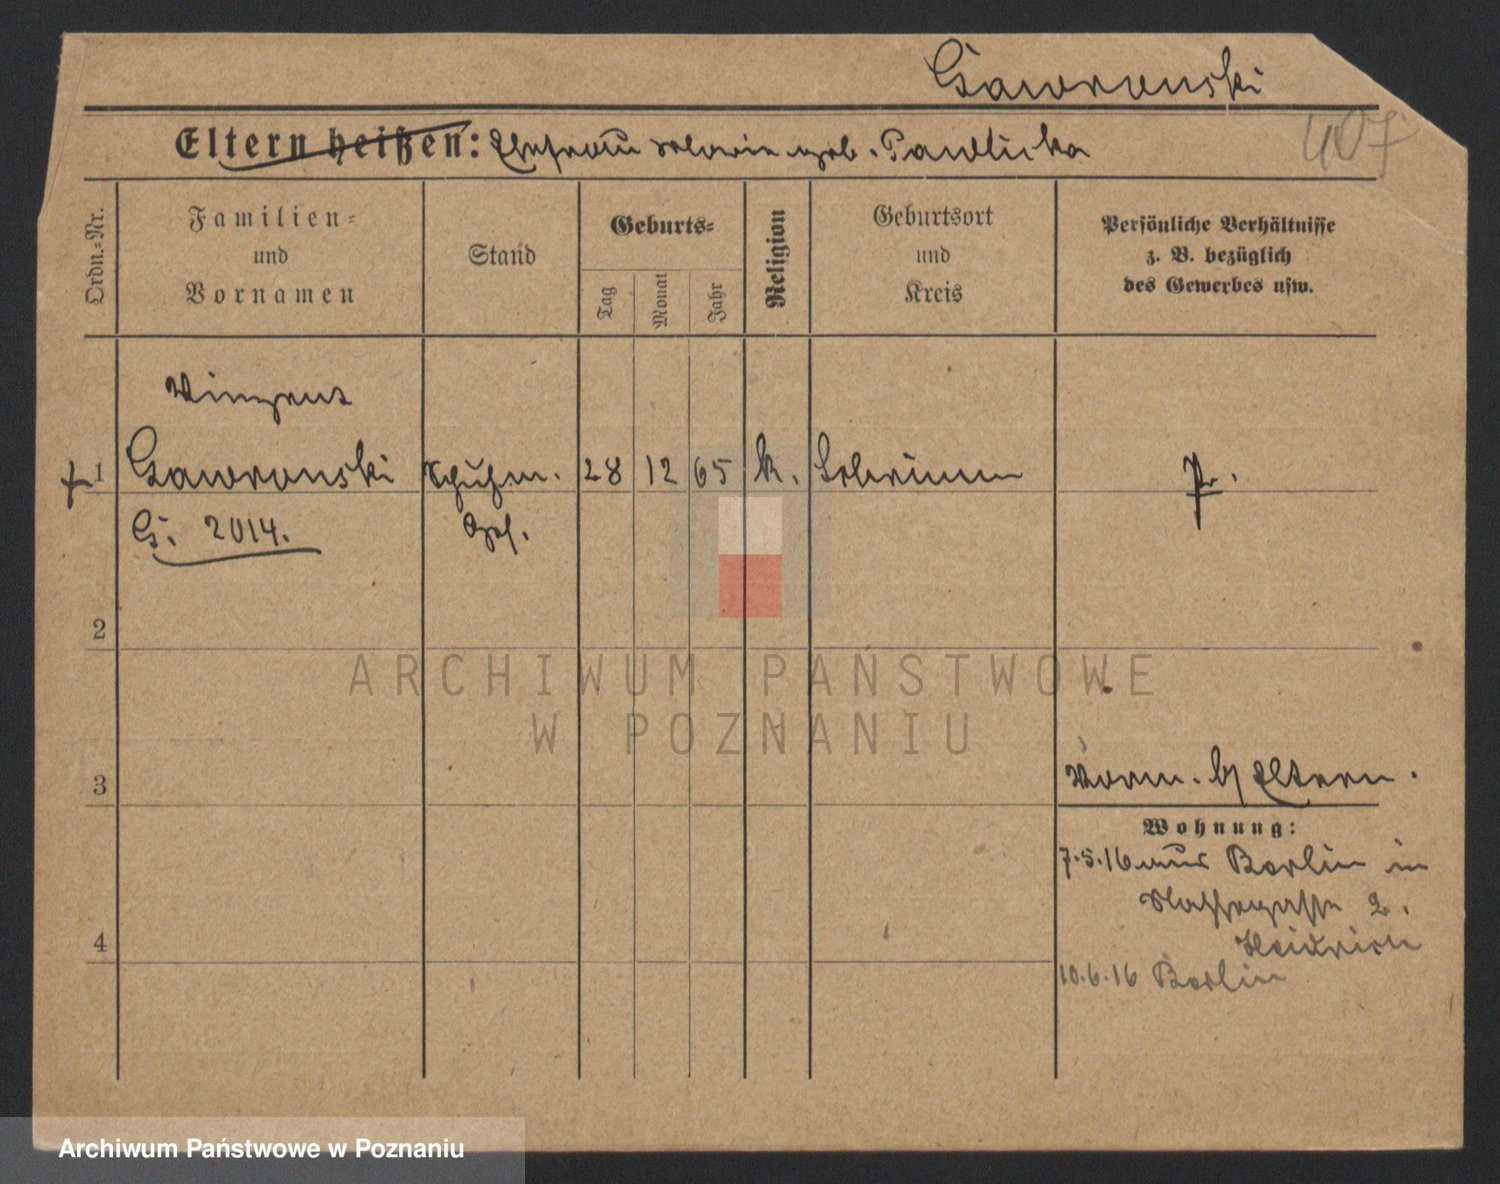 Gawronski
407
Eltern heißen: Ehefrau Marie geb. Pawlicka
Ordn.=Nr.
Familien=
und
Vornamen
Stand
Geburts=
Tag
Monat
Jahr
Religion
Geburtsort
und
Kreis
Persönliche Verhältnisse
z. B. bezüglich
des Gewerbes usw.
Vinzent
+ 1 Gawronski Schuhm. 28 12 65 k. Schrimm Pr.
G. 2014. Ges.
2
ARCHIWUM PAŃSTWOWE
W POZNANIU
3
Vorm. b/ Eltern.
Wohnung:
7.5.16 aus Berlin in
2.
4
Heidrich
10.6.16 Berlin
Archiwum Państwowe w Poznaniu